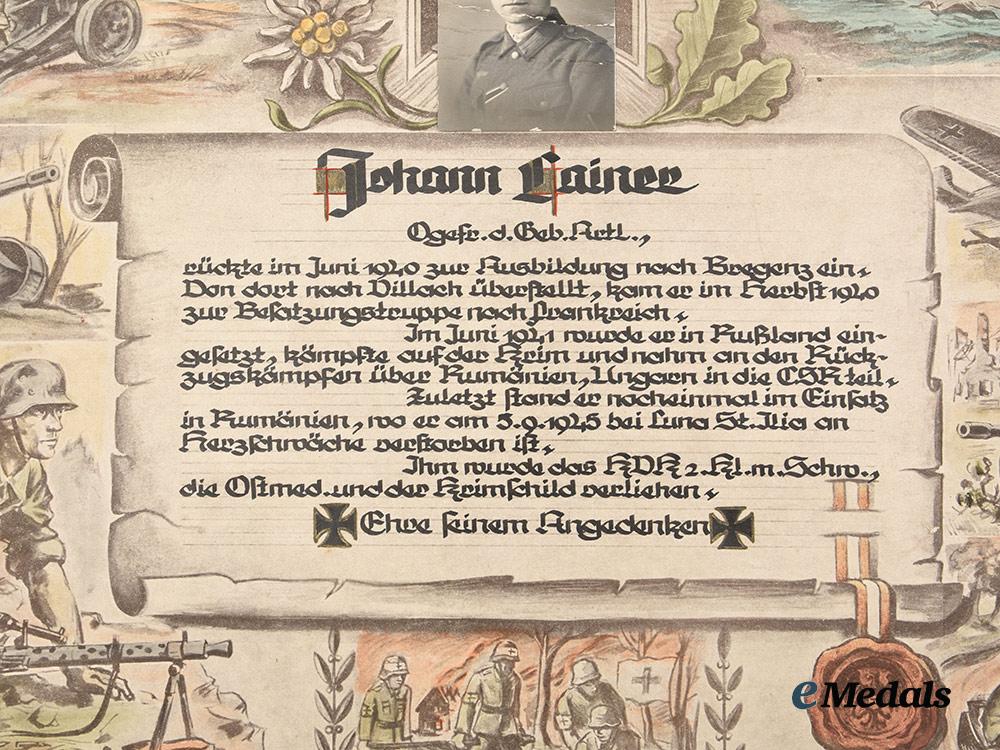 Johann Lainer
Ogefr. d. Geb. Artl.,
rückte im Juni 1940 zur Ausbildung nach Bregenz ein.
Von dort nach Villach überstellt, kam er im Herbst 1940
zur Besatzungstruppe nach Frankreich.
Im Juni 1941 wurde er in Rußland ein-
gesetzt, kämpfte auf der Krim und nahm an den Rück-
zugskämpfen über Rumänien, Ungarn in die CSR teil.
Zuletzt stand er nocheinmal im Einsatz
in Rumänien, wo er am 5.9.1945 bei Luna St. Ilia an
Herzschwäche verstorben ist.
Ihm wurde das KVK 2. Kl. m. Schw.,
die Ostmed. und der Krimschild verliehen.
Ehre seinem Angedenken
eMedals